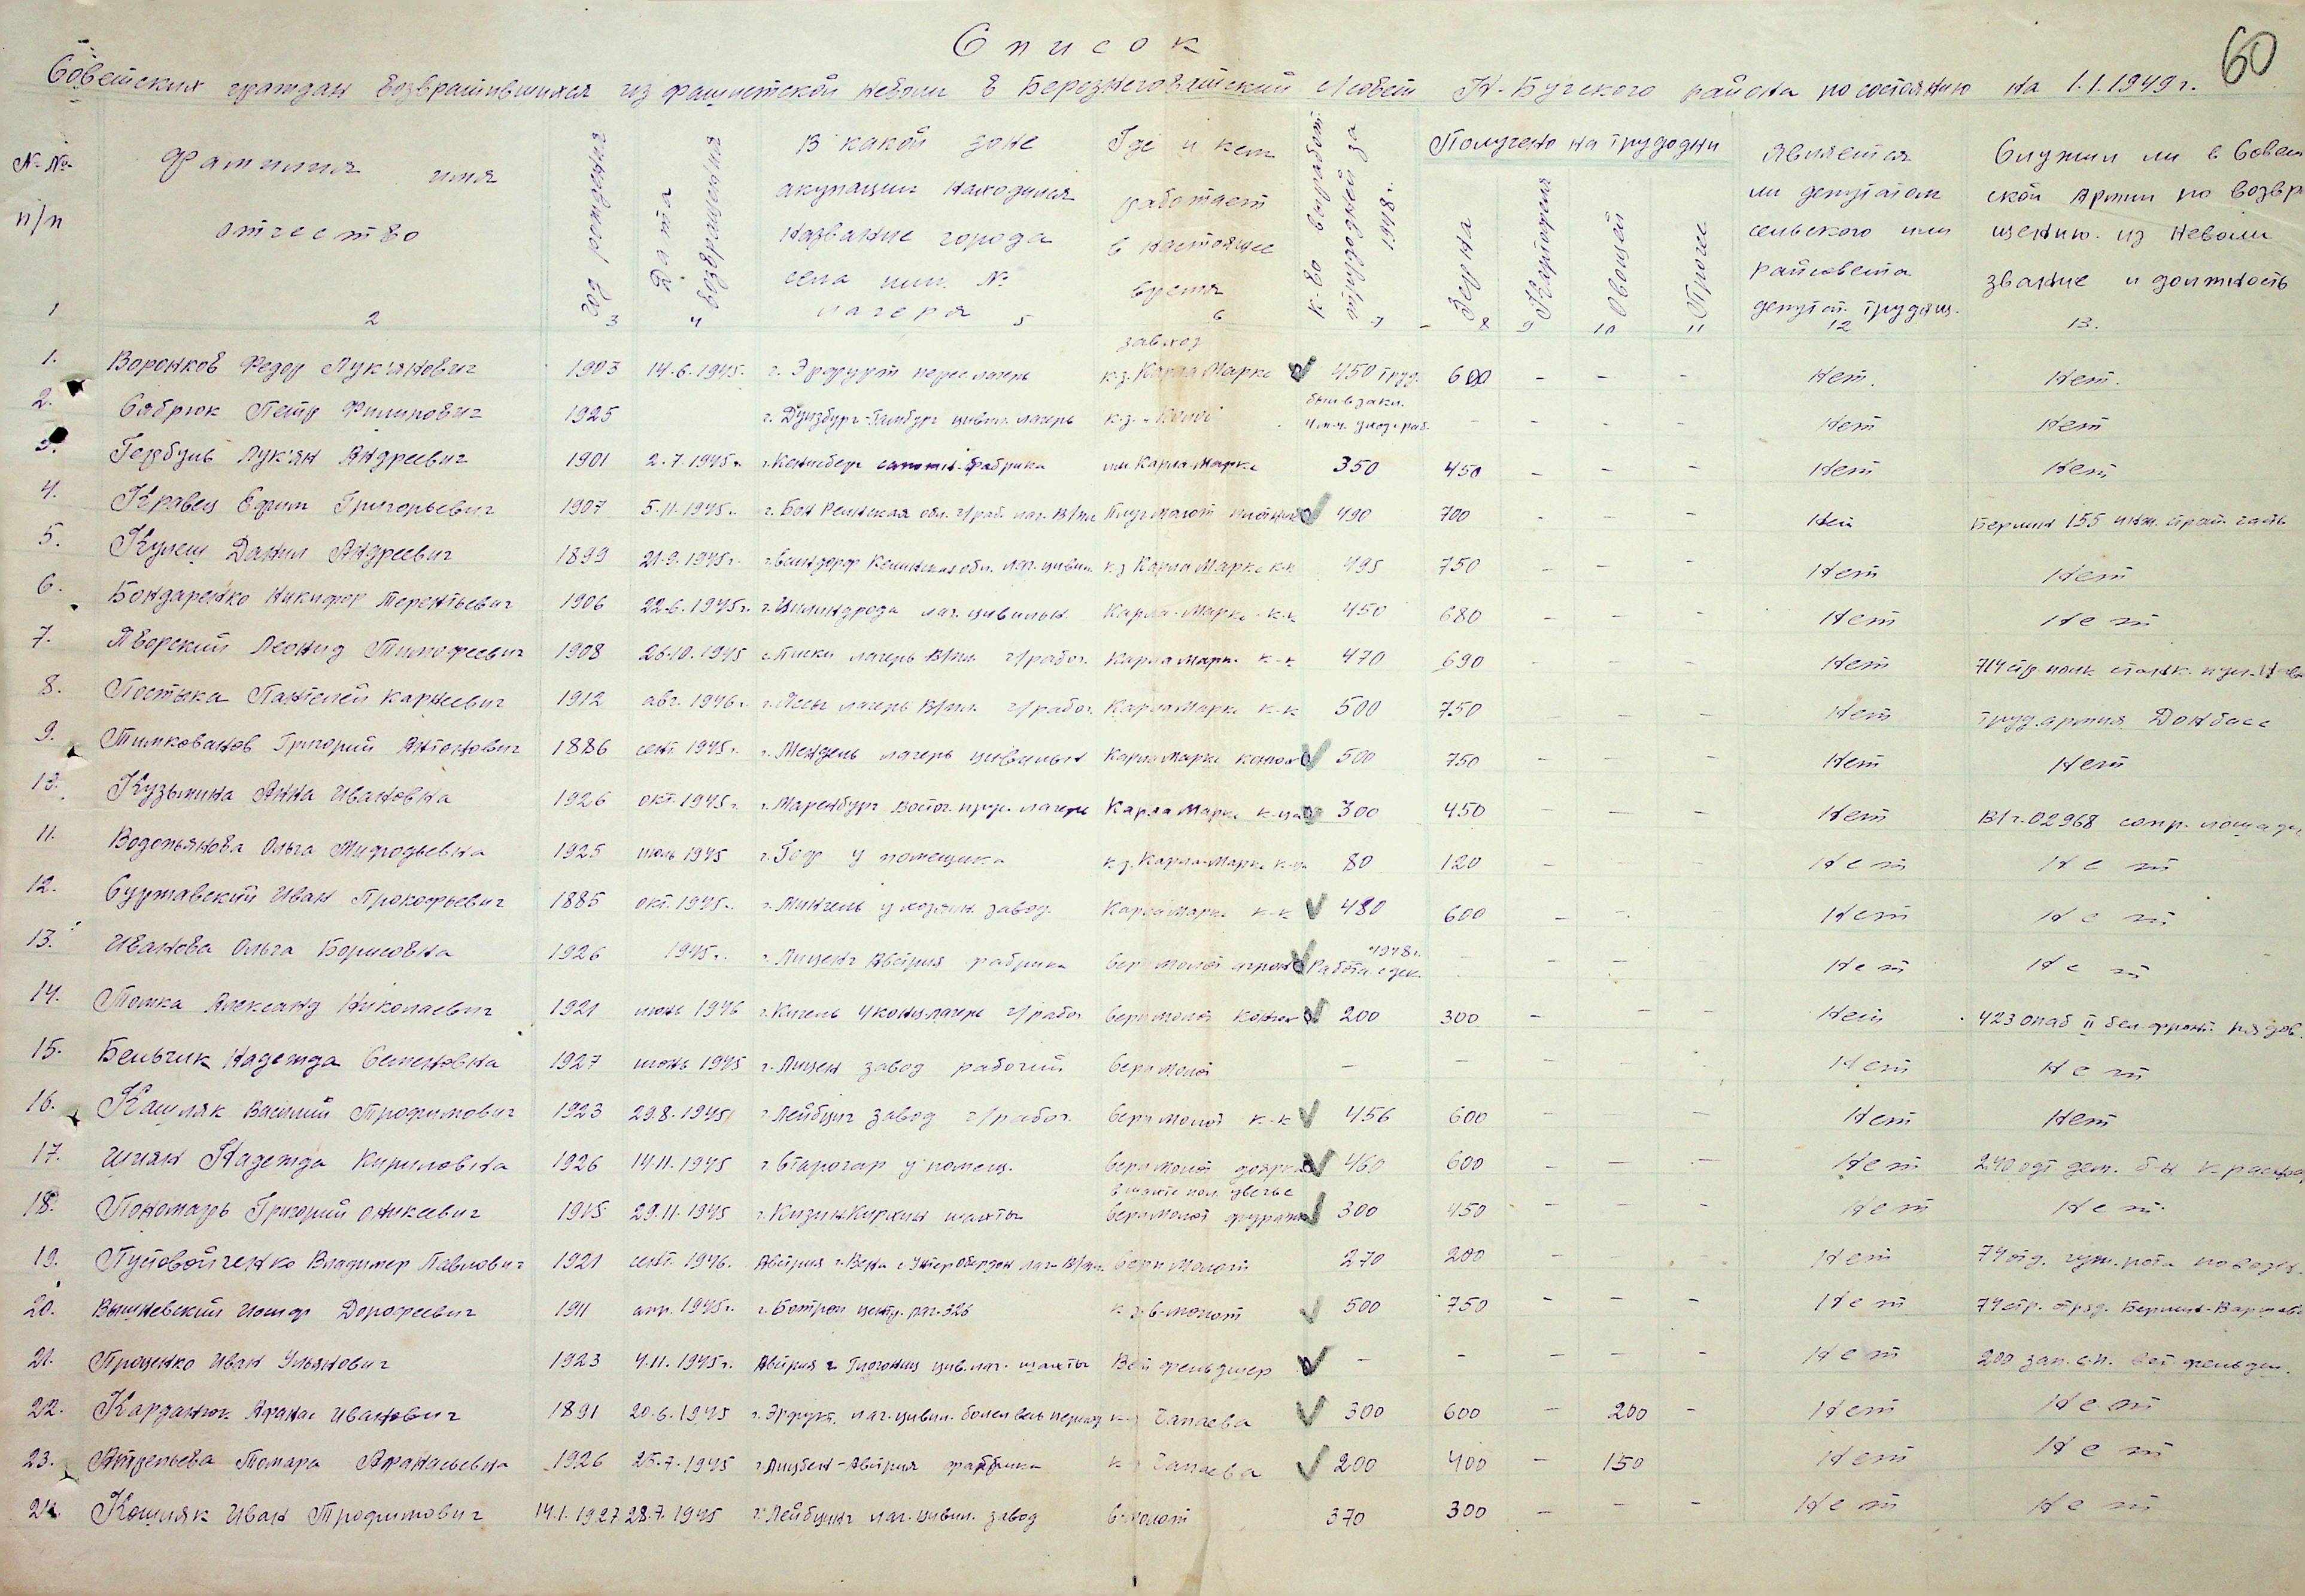 60
Список
Советских граждан возвратившихся из фашистской неволи в Березнеговатский с/совет Н-Бугского района по состоянию на 1.1.1949 г.
№ №
п/п
Фамилия имя
отчество
год рождения
Дата возвращения
В какой зоне
акупации находился
название города
села или №
лагеря
Где и кем
работает
в настоящее
время
к-во выработ
трудодней за
1948 г.
Получено на трудодни
Зерна
Картофеля
Овощей
Прочее
Является
ли депутатом
сельского или
райсовета
депутат. трудящ.
Служил ли в Совет
ской Армии по возвр
щению из неволи
звание и должность
1 2 3 4 5 6 7 8 9 10 11 12 13.
1. Воронков Федор Лукянович 1903 14.6.1945. г. Эрфурт перес лагерь завхоз к.з. Карла Маркс 450 труд. 600 - - - нет. нет.
2. Сабрюк Петр Филипович 1925 г. Дуизбург-Гамбург цивил. лагерь к.з. - - - - нет нет
3. Гербуль Лук'ян Андреевич 1901 2.7.1945 г. фабрика им. Карла-Маркс 350 450 - - - нет нет
4. Кравец Ефим Григорьевич 1907 5.11.1945 г. г. Бон Ренская обл. ч/раб. лаг. В/пл 490 700 - - - нет Берлин 155
5. Кулеш Данил Андреевич 1899 21.9.1945 г. лаг. цивил. к.з Карла Маркс к-к 495 750 - - - нет нет
6. Бондаренко Никифор Терентьевич 1906 22.6.1945 г. лаг. цивильн. Карла-Маркс-к-к 450 680 - - - нет нет
7. Яворский Леонид Тимофеевич 1908 26.10.1945 лагерь В/пл. ч/рабоч. Карла Маркс к-к 470 690 - - - нет 714 стр полк
8. Постыка Пантелей Карнеевич 1912 авг. 1946 г. г. Яссы лагерь В/пл. ч/рабоч. Карла Маркс к-к 500 750 - - - нет труд. армия Донбасс
9. Тимкованов Григорий Антонович 1886 сент. 1945 г. г. Мендень лагерь цивильн Карла Маркс конюх 500 750 - - - нет нет
10. Кузьмина Анна Ивановна 1926 окт. 1945 г. г. Маренбург восточ. прус. лагерь Карла Маркс к-ца 300 450 - - - нет В/ч. 02968
11. Водопьянова Ольга Мифодьевна 1925 июль 1945 у помещика к.з. Карла-Маркс к-ца 80 120 - - - нет нет
12. Суржавский Иван Прокофьевич 1885 окт. 1945 г. у хозяин. завод. Карла Маркс к-к 480 600 - - - нет нет
13. Иванова Ольга Борисовна 1926 1945 г. Австрия фабрика Серп молот агроном 1948 г. Работа - - - нет нет
14. Томка Александ Николаевич 1921 июнь 1946 концлагерь ч/рабоч Серп молот конюх 200 300 - - - нет 423 опаб II бел. фронт рядов.
15. Бельчик Надежда Семеновна 1927 июнь 1945 завод рабочий Серп Молот - - - - - нет нет
16. Кашляк Василий Трофимович 1923 29.8.1945 г. Лейбциг завод ч/рабоч. Серп молот к-к 456 600 - - - нет нет
17. Шиян Надежда Кириловна 1926 14.11.1945 г. Старогар у помещ. Серп молот доярка 460 600 - - - нет
18. Пономарь Григорий Оникеевич 1915 29.11.1945 шахты Серп Молот фуражир 300 450 - - - нет нет.
19. Пустовойченко Владимер Павлович 1921 сент. 1946. Австрия г. Вена Серп Молот 270 200 - - - нет
20. Вышневский Иосиф Дорофеевич 1911 апр. 1945 г. лаг. 326 к з. С-молот 500 750 - - - нет 74 стр. Берлин-Варшава
21. Проценко Иван Ульянович 1923 4.11.1945 г. Австрия цив. лаг. шахты Вет фельдшер - - - - - нет 200 зап. с.п. вет фельдш.
22. Карданюк Афанас Иванович 1891 20.6.1945 г. Эрфурт. лаг. цивил. болел весь период к-з Чапаева 300 600 - 200 - нет нет
23. Антрепьева Томара Афанасьевна 1926 25.7.1945 Австрия фабрика к з Чапаева 200 400 - 150 нет нет
24. Кошляк Иван Трофимович 14.1.1927 28.7.1945 г. Лейбцинг лаг. цивил. завод С-молот 370 300 - - - нет нет